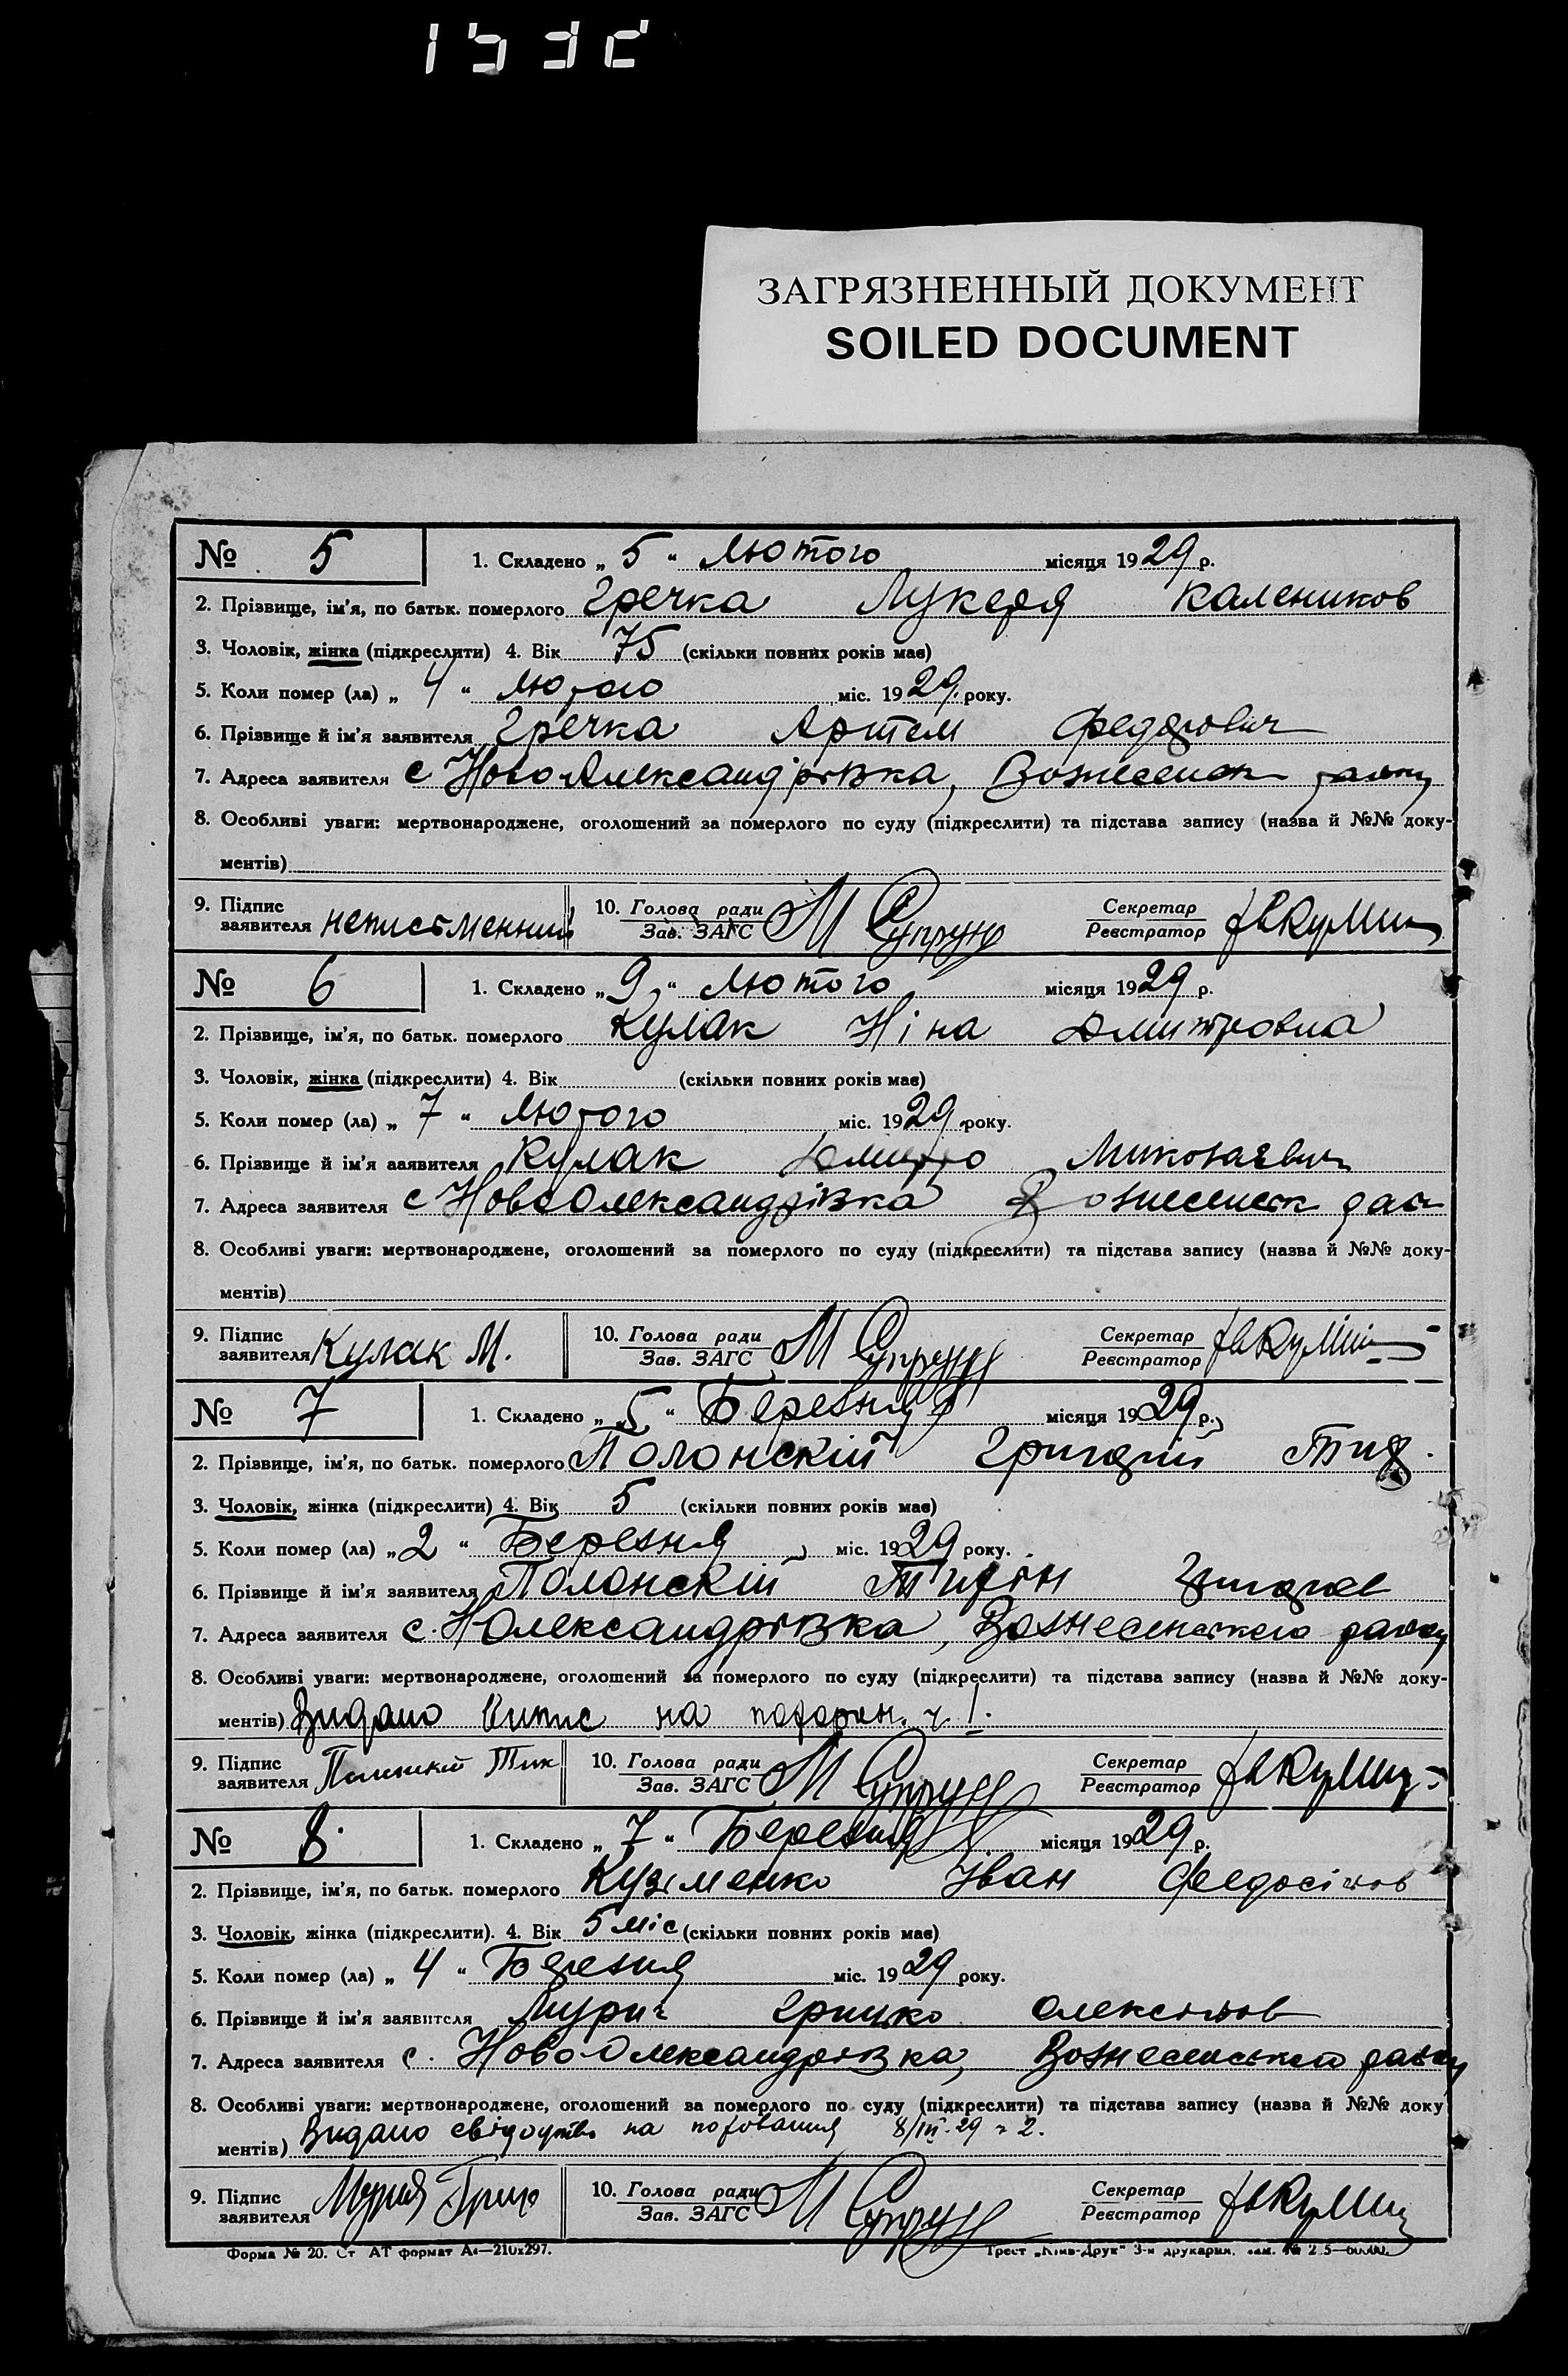 ЗАГРЯЗНЕННЫЙ ДОКУМЕНТ
SOILED DOCUMENT
№ 5 1. Складено „ 5 “ Лютого місяця 1929 р.
2. Прізвище, ім'я, по батьк. померлого Гречка Лукеря Калеников
3. Чоловік, жінка (підкреслити) 4. Вік 75 (скільки повних років має)
5. Коли помер (ла) „ 4 “ Лютого міс. 1929 року.
6. Прізвище й ім'я заявителя Гречка Артем Федорович
7. Адреса заявителя с НовоАлександрівка, Вознесенск району
8. Особливі уваги: мертвонароджене, оголошений за померлого по суду (підкреслити) та підстава запису (назва й №№ доку-
ментів)
9. Підпис заявителя неписьменний 10. Голова ради Зав. ЗАГС М Супрун Секретар Реєстратор
№ 6 1. Складено „ 9 “ Лютого місяця 1929 р.
2. Прізвище, ім'я, по батьк. померлого Кулак Ніна Дмитровна
3. Чоловік, жінка (підкреслити) 4. Вік (скільки повних років має)
5. Коли помер (ла) „ 7 “ Лютого міс. 1929 року.
6. Прізвище й ім'я заявителя Кулак Дмитро Миколаевич
7. Адреса заявителя с НовоОлександрівка Вознесенск рай
8. Особливі уваги: мертвонароджене, оголошений за померлого по суду (підкреслити) та підстава запису (назва й №№ доку-
ментів)
9. Підпис заявителя Кулак М. 10. Голова ради Зав. ЗАГС М Супрун Секретар Реєстратор
№ 7 1. Складено „ 5 “ Березня місяця 1929 р.
2. Прізвище, ім'я, по батьк. померлого Полонскій Григорій
3. Чоловік, жінка (підкреслити) 4. Вік 5 (скільки повних років має)
5. Коли помер (ла) „ 2 “ Березня міс. 1929 року.
6. Прізвище й ім'я заявителя Полонскій
7. Адреса заявителя с. НОлександрівка, Вознесенського району
8. Особливі уваги: мертвонароджене, оголошений за померлого по суду (підкреслити) та підстава запису (назва й №№ доку-
ментів) Видано Випис на похорон. ч. 1.
9. Підпис заявителя 10. Голова ради Зав. ЗАГС М Супрун Секретар Реєстратор
№ 8 1. Складено „ 7 “ Березня місяця 1929 р.
2. Прізвище, ім'я, по батьк. померлого Кузьменко Іван Федосійов
3. Чоловік, жінка (підкреслити). 4. Вік 5 міс (скільки повних років має)
5. Коли помер (ла) „ 4 “ Березня міс. 1929 року.
6. Прізвище й ім'я заявителя Грицко
7. Адреса заявителя с. НовоОлександрівка, Вознесенського району
8. Особливі уваги: мертвонароджене, оголошений за померлого по суду (підкреслити) та підстава запису (назва й №№ доку
ментів) Видано свідоцтво на поховання 8/III-29 ч 2.
9. Підпис заявителя 10. Голова ради Зав. ЗАГС М Супрун Секретар Реєстратор
Форма № 20. Ст АТ формат А4—210х297. Трест „Київ-Друк“ 3-я друкарня.